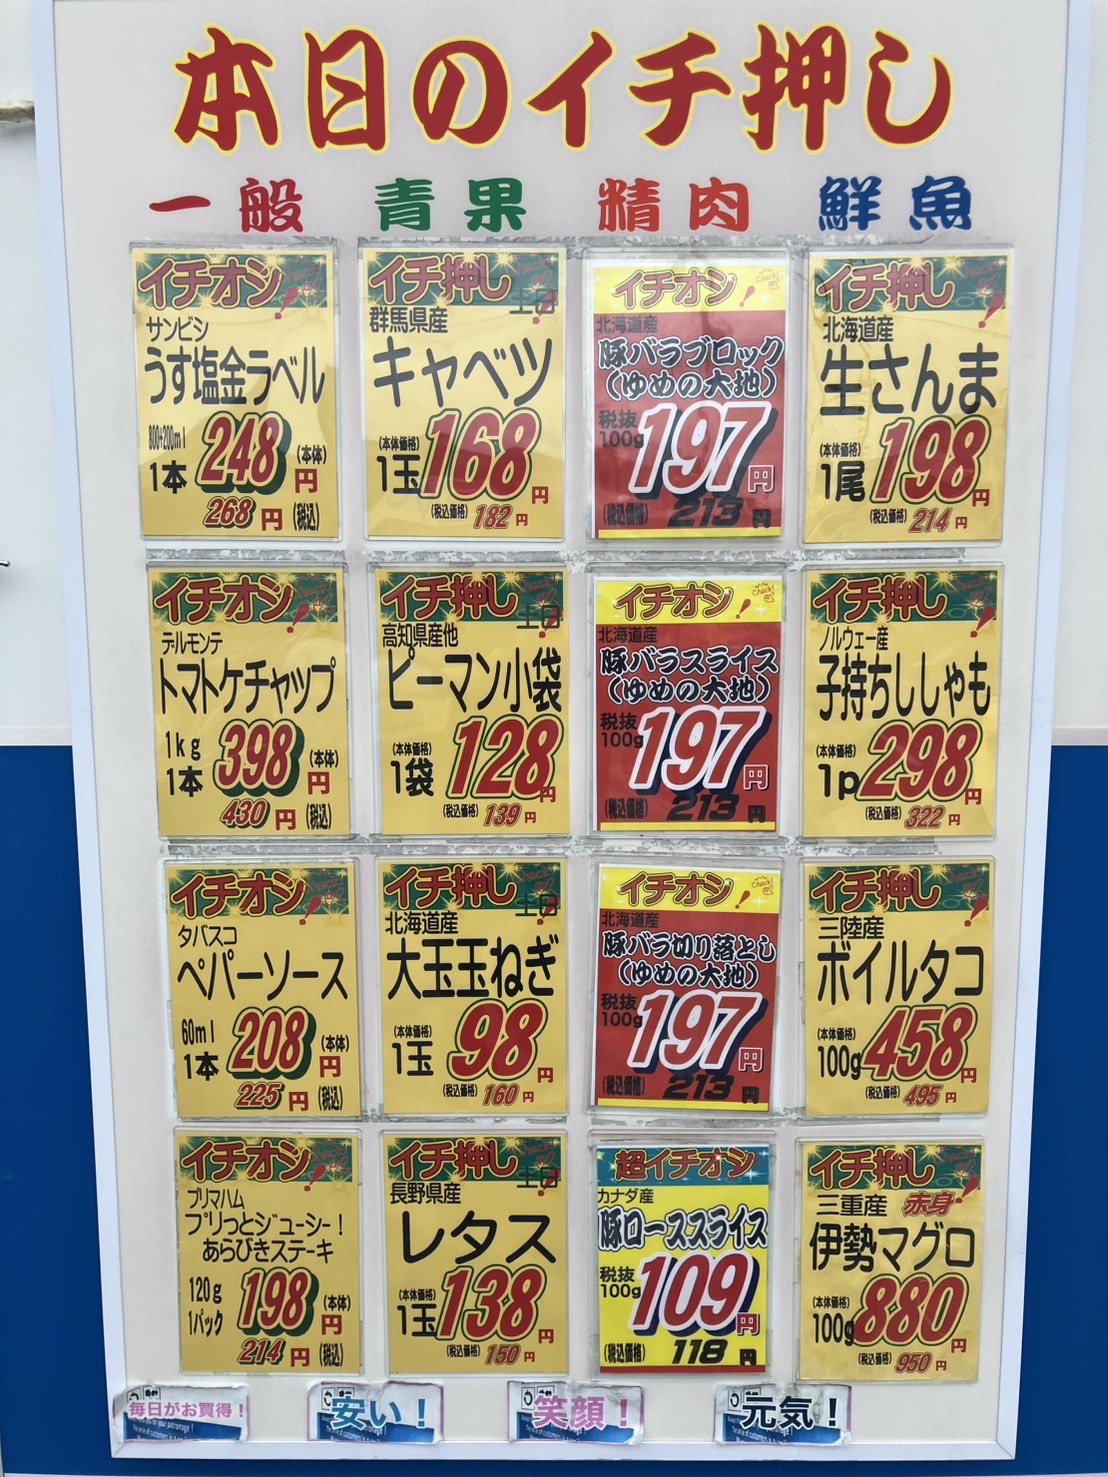 本日のイチ押し
一般 青果 精肉 鮮魚
イチオシ!
サンビシ
うす塩金ラベル
800+200ml
1本 248円 (本体)
268円 (税込)
イチ押し!
土日
群馬県産
キャベツ
(本体価格)
1玉 168円
(税込価格) 182円
イチオシ!
check!
北海道産
豚バラブロック
(ゆめの大地)
税抜
100g 197円
(税込価格) 213円
イチ押し!
check!
北海道産
生さんま
(本体価格)
1尾 198円
(税込価格) 214円
イチオシ!
デルモンテ
トマトケチャップ
1kg
1本 398円 (本体)
430円 (税込)
イチ押し!
土日
高知県産他
ピーマン小袋
(本体価格)
1袋 128円
(税込価格) 139円
イチオシ!
check!
北海道産
豚バラスライス
(ゆめの大地)
税抜
100g 197円
(税込価格) 213円
イチ押し!
check!
ノルウェー産
子持ちししゃも
(本体価格)
1p 298円
(税込価格) 322円
イチオシ!
タバスコ
ペパーソース
60ml
1本 208円 (本体)
225円 (税込)
イチ押し!
check!
土日
北海道産
大玉玉ねぎ
(本体価格)
1玉 98円
(税込価格) 160円
イチオシ!
check!
北海道産
豚バラ切り落とし
(ゆめの大地)
税抜
100g 197円
(税込価格) 213円
イチ押し!
check!
三陸産
ボイルタコ
(本体価格)
100g 458円
(税込価格) 495円
イチオシ!
プリマハム
プリっとジューシー!
あらびきステーキ
120g
1パック 198円 (本体)
214円 (税込)
イチ押し!
土日
長野県産
レタス
(本体価格)
1玉 138円
(税込価格) 150円
超イチオシ
カナダ産
豚ローススライス
税抜
100g 109円
(税込価格) 118円
イチ押し!
三重産 赤身
伊勢マグロ
(本体価格)
100g 880円
(税込価格) 950円
毎日がお買得!
安い!
笑顔!
元気!